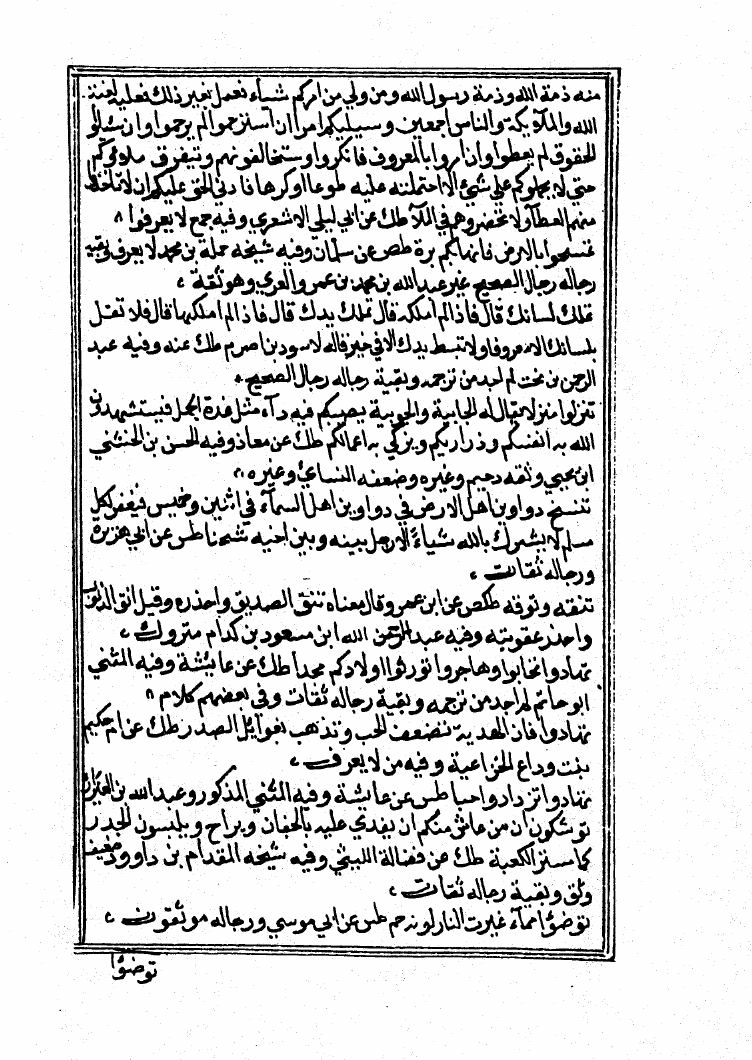 منه ذمة الله وذمة رسول الله ومن ولي من امركم شيأ فعمل بغير ذلك فعليه لعنة
الله والملآئكة والناس اجمعين وسيليكم امرآ ان استرحموا لم يرحموا وان سئلوا
الحقوق لم يعطوا وان امروا بالمعروف فانكروا وستخالفونهم ويتفرق ملاؤكم
حتي لا يحملوكم علي شيئ الا احتملتم عليه طوعا او كرها فادني الحق عليكم ان لا تاخذوا
منهم العطآ ولا تحضروهم في الملأ طك عن ابي ليلي الاشعري وفيه جمع لا يعرفوا
تمسحوا بالارض فانها بكم برة طص عن سلمان وفيه شيخه حملة بن محمد لا يعرف وبقية
رجاله رجال الصحيح غير عبد الله بن محمد بن عمرو الغزي وهو ثقة
تملك لسانك قال فاذا لم املكه قال تملك يدك قال فاذا لم املكها قال فلا تقل
بلسانك الا معروفا ولا تبسط يدك الا في خير قاله لاسود بن اصرم طك عنه وفيه عبد
الرحمن لم اجد من ترجمه وبقية رجاله رجال الصحيح
تنزلوا منزلا يقال له الجابية والجويبية يصيبكم فيه دآء مثل غدة الجمل فيستشهد
الله به انفسكم وذراريكم ويزكي به اعمالكم طك عن معاذ وفيه الحسن بن الخشني
ابن يحيي وثقه دحيم وغيره وضعفه النسائي وغيره
تنسخ دواوين اهل الارض في دواوين اهل السمآء في اثنين وخميس فيغفر لكل
مسلم لا يشرك بالله شيأ الا رجل بينه وبين اخيه شحنا طس عن ابي هريرة
ورجاله ثقات
تنقه وتوقه طكص عن ابن عمر وقال معناه تنق الصديق واحذره وقيل اتق الذنوب
واحذر عقوبته وفيه عبد الرحمن الله ابن مسعود بن كدام متروك
تهادوا تحابوا وهاجروا تورثوا اولادكم مجدا طك عن عايشة وفيه المثني
ابو حاتم لم اجد من ترجمه وبقية رجاله ثقات وفي بعضهم كلام
تهادوا فان الهدية تضعف الحب وتذهب بغوايل الصدر طك عن ام حكيم
بنت وداع الخزاعية وفيه من لا يعرف
تهادوا تزدادوا حبا طس عن عايشة وفيه المثني المذكور وعبد الله بن العيزار
توشكون ان من عاش منكم ان يغدي عليه بالجفان ويراح ويلبسون الجدر
كما ستر الكعبة طك عن فضالة الليثي وفيه شيخه المقدام بن داوود ضعيف
وثق وبقية رجاله ثقات
توضؤا مما غيرت النار لونه حم طس عن ابي موسي ورجاله موثقون
توضؤا